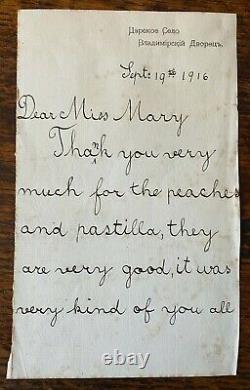 Царское Село
Владимірскій Дворецъ.
Sept: 19th 1916
Dear Miss Mary
Thank you very
much for the peaches
and pastilla, they
are very good, it was
very kind of you all